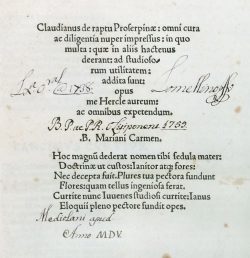 Claudianus de raptu Proserpinæ: omni cura
ac diligentia nuper impressus: in quo
multa: quæ in aliis hactenus
deerant: ad studioso-
rum utilitatem:
addita sunt:
1758.
opus
me Hercle aureum:
ac omnibus expetendum.
1753.
B. Mariani Carmen.
Hoc magnũ dederat nomen tibi sedula mater:
Doctrinæ ut custos: Ianitor atq; fores:
Nec decepta fuit. Plures tua pectora fundunt
Flores: quam tellus ingeniosa ferat.
Currite nunc Iuuenes studiosi currite: Ianus
Eloquii pleno pectore fundit opes.
Mediolani apud
Anno MDV.